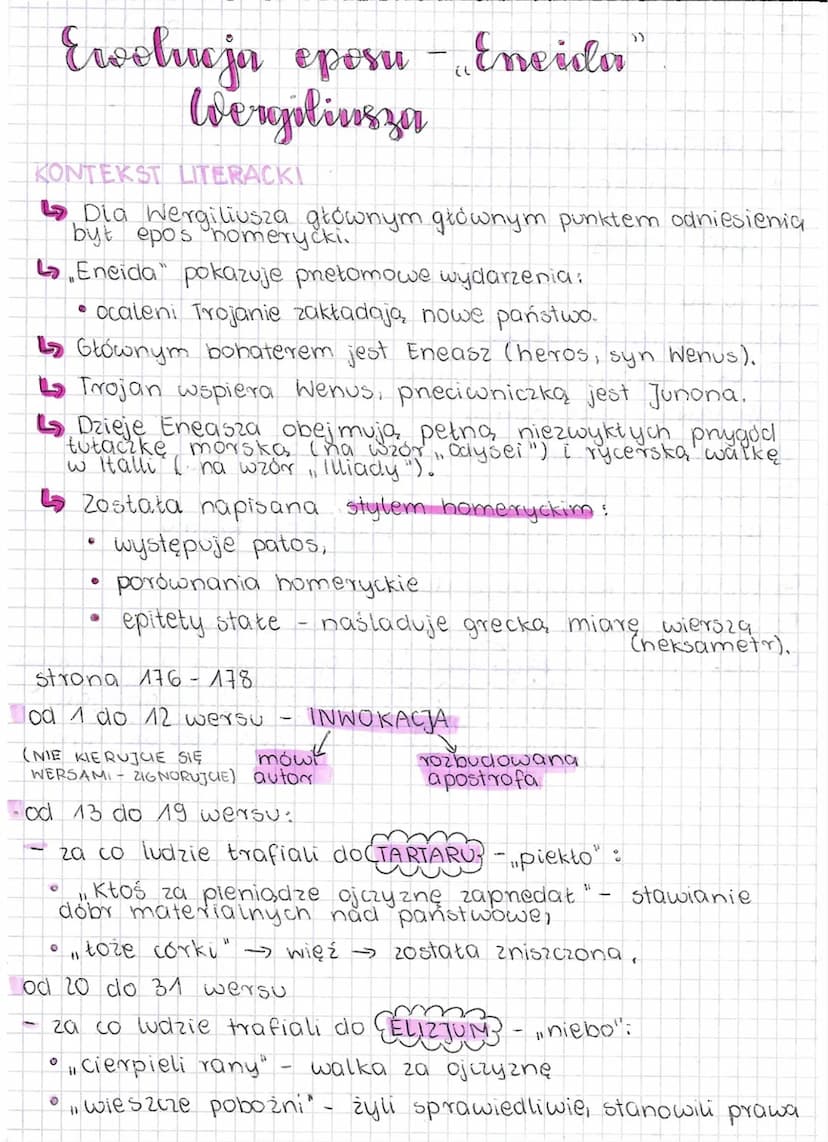 Ewolucja eposu - „Eneida"
Wergiliusza
KONTEKST LITERACKI
↳ Dla Wergiliusza głównym głównym punktem odniesienia
był epos homerycki.
↳ „Eneida" pokazuje przełomowe wydarzenia:
• ocaleni Trojanie zakładają nowe państwo.
↳ Głównym bohaterem jest Eneasz (heros, syn Wenus).
↳ Trojan wspiera Wenus, przeciwniczką jest Junona.
↳ Dzieje Eneasza obejmują pełną niezwykłych przygód
tułaczkę morską (na wzór „Odysei") i rycerską walkę
w Italli ( na wzór „Illiady").
↳ Została napisana stylem homeryckim:
• występuje patos,
• porównania homeryckie
• epitety stałe - naśladuje grecką miarę wiersza
(heksametr).
strona 176 - 178
od 1 do 12 wersu - INWOKACJA
(NIE KIERUJCIE SIĘ mówi rozbudowana
WERSAMI - ZIGNORUJCIE) autor apostrofa
od 13 do 19 wersu:
- za co ludzie trafiali do TARTARU - „piekło":
• „Ktoś za pieniądze ojczyznę zaprzedał" - stawianie
dóbr materialnych nad państwowe,
• „łoże córki" → więź → została zniszczona,
od 20 do 31 wersu
- za co ludzie trafiali do ELIZJUM - „niebo":
• „cierpieli rany" - walka za ojczyznę
• „wieszcze pobożni" - żyli sprawiedliwie, stanowili prawa